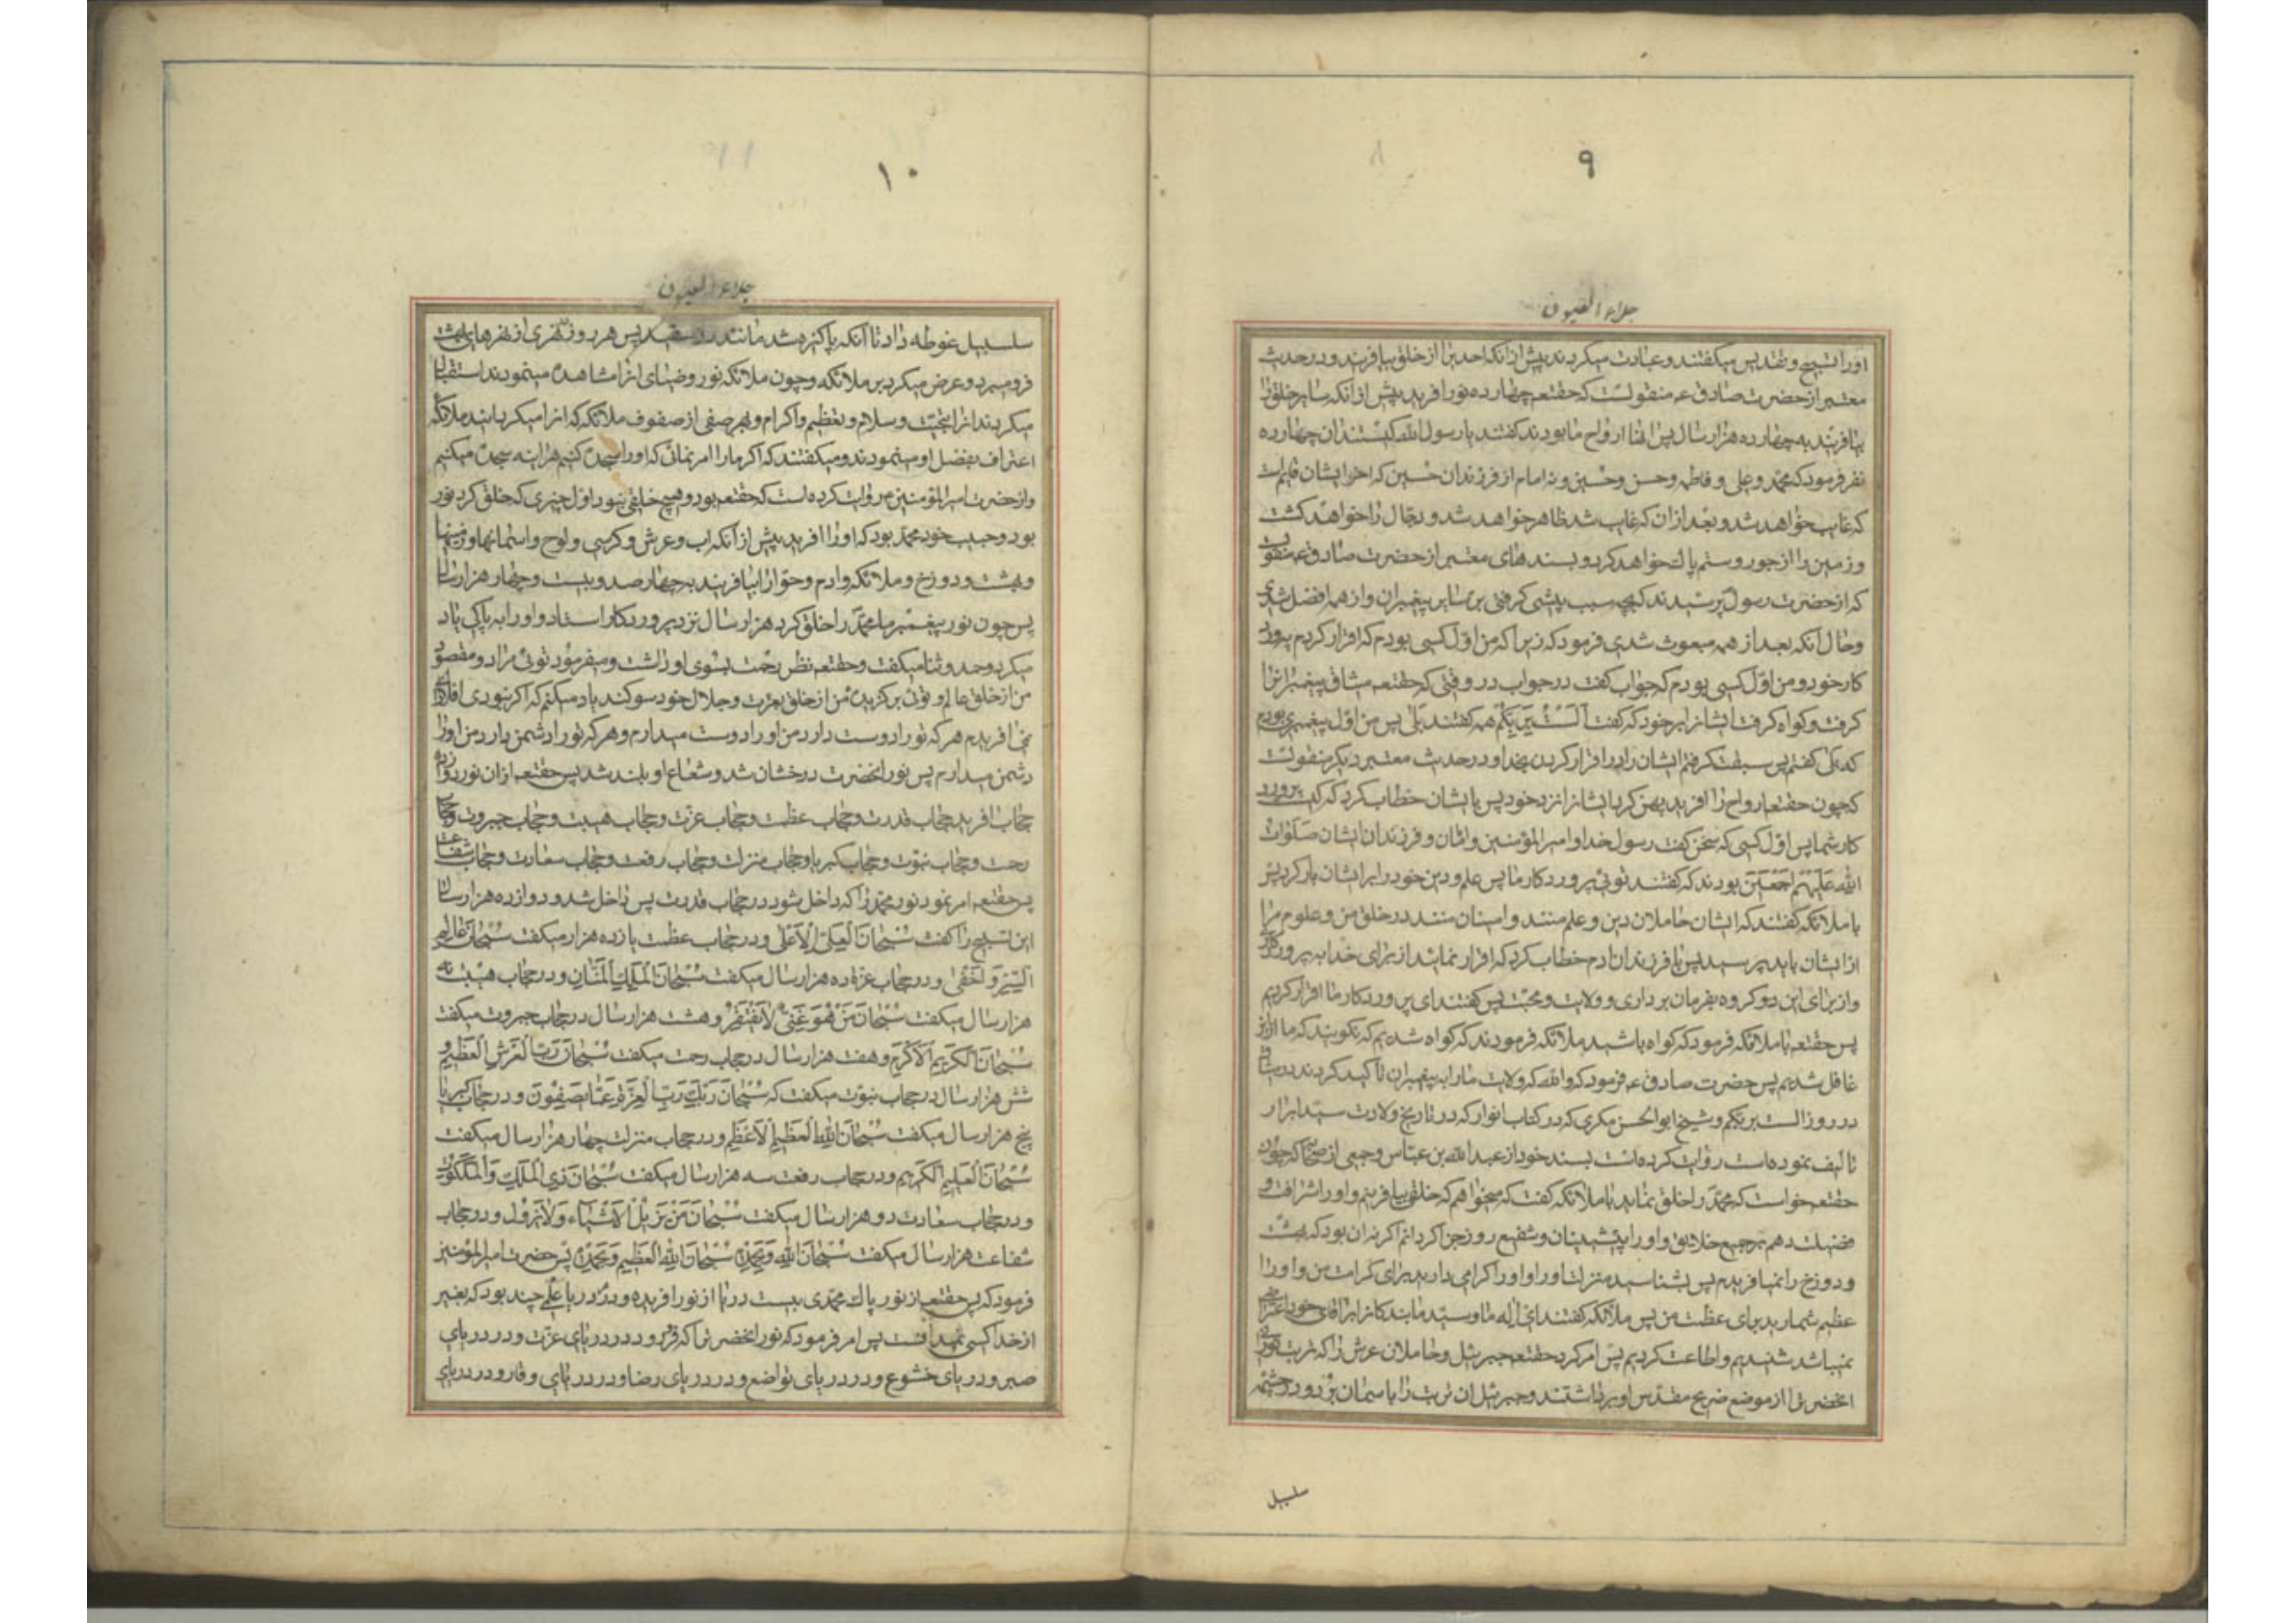 ٩
جلاء العیون
اورا تسبیح و تقدیس میکفتند و عبادت میکردند پیش ازانکه احدیرا از خلق بیافریند و در حدیث
معتبر از حضرت صادق عم منقولست که حقتعم چهارده نور افرید پیش ازانکه سایر خلق را
بیافریند به چهارده هزار سال پس انها ارواح ما بودند کفتند یا رسول الله کیستند ان چهارده
نفر فرمود که محمد و علی و فاطمه و حسن و حسین و نه امام از فرزندان حسین که اخر ایشان قایم است
که غایب خواهد شد و بعد از ان که غایب شد ظاهر خواهد شد و دجال را خواهد کشت
و زمین را از جور و ستم پاک خواهد کرد و بسندهای معتبر از حضرت صادق عم منقولست
که از حضرت رسول پرسیدند که بچه سبب پیشی کرفتی بر سایر پیغمبران و از همه افضل شدی
و حال انکه بعد از همه مبعوث شدی فرمود که زیرا که من اول کسی بودم که اقرار کردم به پرورد
کار خود و من اول کسی بودم که جواب کفت در جواب در وقتی که حقتعم میثاق پیغمبرانرا
کرفت و کواه کرفت ایشانرا بر خود که کفت اَلَسْتُ بِرَبِّکُمْ همه کفتند بَلی پس من اول پیغمبری بودم
که بلی کفتم پس سبقت کرفتم ایشان را در اقرار کردن بخدا و در حدیث معتبر دیکر منقولست
که چون حقتعم ارواح را افرید پهن کرد ایشانرا نزد خود پس با ایشان خطاب کرد که کیست پرورد
کار شما پس اول کسی که سخن کفت رسول خدا و امیر المؤمنین و امامان و فرزندان ایشان صَلَوَاتُ
اللهِ عَلَیْهِمْ اَجْمَعینَ بودند که کفتند توئی پروردکار ما پس علم و دین خود را بر ایشان بار کرد پس
با ملائکه کفتند که ایشان حاملان دین و علم منند و امینان منند در خلق من و علوم مرا
از ایشان باید پرسید پس با فرزندان ادم خطاب کرد که اقرار نمائید از برای خدا به پروردکاری
و از برای این دو کروه بفرمان برداری و ولایت و محبت پس کفتند ای پروردکار ما اقرار کردیم
پس حقتعم با ملائکه فرمود که کواه باشید ملائکه فرمودند که کواه شدیم که نکویند که ما ازین
غافل شدیم پس حضرت صادق عم فرمود که والله که ولایت ما را به پیغمبران تاکید کردند در میثاق
در روز الست بربکم و شیخ ابو الحسن بکری که در کتاب انوار که در تاریخ ولادت سید ابرار
تالیف نموده است روایت کرده است بسند خود از عبد الله بن عباس و جمعی از صحابه که چون
حقتعم خواست که محمد را خلق نماید با ملائکه کفت که میخواهم که خلقی بیافرینم و او را شرافت و
فضیلت دهم بر جمیع خلایق و او را پیشینیان و شفیع روز جزا کردانم اکر نه ان بود که بهشت
و دوزخ را نمیافریدم پس بشناسید منزلت او را و او را کرامی دارید برای کرامت من و او را
عظیم شمارید برای عظمت من پس ملائکه کفتند ای اله ما و سید ما بندکانرا بر اقای خود اعتراضی
نمیباشد شنیدیم و اطاعت کردیم پس امر کرد حقتعم جبرئیل و حاملان عرش را که تربت نور
انحضرترا از موضع ضریح مقدس او برداشتند و جبرئیل ان تربت را با سمان برد و در چشمه
سلسبیل
١٠
جلاء العیون
سلسبیل غوطه داد تا انکه پاکیزه شد مانند در سفید پس هر روز بنهری از نهرهای بهشت
فرو میبرد و عرض میکرد بر ملائکه و چون ملائکه نور و ضیای انرا مشاهده مینمودند استقبال
میکردند انرا بتحیت و سلام و تعظیم و اکرام و بهر صفی از صفوف ملائکه که انرا میکردانیدند ملائکه
اعتراف بفضل او مینمودند و میکفتند که اکر ما را امر نمائی که او را سجده کنیم هراینه سجده میکنیم
و از حضرت امیر المؤمنین روایت کرده است که حقتعم بود و هیچ خلقی نبود اول چیزی که خلق کرد نور
بود و حبیب خود محمد بود که او را افرید پیش از انکه اب و عرش و کرسی و لوح و اسمانها و زمینها
و بهشت و دوزخ و ملائکه و ادم و حوا را بیافریند به چهار صد و بیست و چهار هزار سال
پس چون نور پیغمبر ما محمد را خلق کرد هزار سال نزد پروردکار استاد و او را به پاکی یاد
میکرد و حمد و ثنا میکفت و حقتعم نظر رحمت بسوی او داشت و میفرمود توئی مراد و مقصود
من از خلق عالم و توئی برکزیده من از خلق بعزت و جلال خود سوکند یاد میکنم که اکر نبودی افلاک را
نمیافریدم هر که تو را دوست دارد من او را دوست میدارم و هر که تو را دشمن دارد من او را
دشمن میدارم پس نور انحضرت درخشان شد و شعاع او بلند شد پس حقتعم ازان نور دوازده
حجاب افرید حجاب قدرت و حجاب عظمت و حجاب عزت و حجاب هیبت و حجاب جبروت و حجاب
رحمت و حجاب نبوت و حجاب کبریا و حجاب منزلت و حجاب رفعت و حجاب سعادت و حجاب شفاعت
پس حقتعم امر نمود نور محمد را که داخل شود در حجاب قدرت پس داخل شد و دوازده هزار سال
این تسبیح را کفت سُبْحَانَ الْعَلِیِّ الْاَعْلی و در حجاب عظمت یازده هزار میکفت سُبْحَانَ عَالِمِ
السِّرِّ وَ الْخَفی و در حجاب عزة ده هزار سال میکفت سُبْحَانَ الْمَلِکِ الْمَنَّانِ و در حجاب هیبت نه
هزار سال میکفت سُبْحَانَ مَنْ هُوَ غَنِیٌّ لَا یَفْتَقِرُ و هشت هزار سال در حجاب جبروت میکفت
سُبْحَانَ الْکَرِیمِ الْاَکْرَمِ و هفت هزار سال در حجاب رحمت میکفت سُبْحَانَ رَبِّ الْعَرْشِ الْعَظِیمِ و
شش هزار سال در حجاب نبوت میکفت که سُبْحَانَ رَبِّکَ رَبِّ الْعِزَّةِ عَمَّا یَصِفُونَ و در حجاب کبریا
پنج هزار سال میکفت سُبْحَانَ اللهِ الْعَظِیمِ الْاَعْظَمِ و در حجاب منزلت چهار هزار سال میکفت
سُبْحَانَ الْعَلِیمِ الْکَرِیمِ و در حجاب رفعت سه هزار سال میکفت سُبْحَانَ ذِی الْمُلْکِ وَ الْمَلَکُوتِ
و در حجاب سعادت دو هزار سال میکفت سُبْحَانَ مَنْ یُزِیلُ الْاَشْیَاءَ وَ لَا یَزُولُ و در حجاب
شفاعت هزار سال میکفت سُبْحَانَ اللهِ وَ بِحَمْدِهِ سُبْحَانَ اللهِ الْعَظِیمِ وَ بِحَمْدِهِ پس حضرت امیر المؤمنین
فرمود که پس حقتعم از نور پاک محمدی بیست دریا از نور افرید و در هر دریا علمی چند بود که بغیر
از خدا کسی نمیدانست پس امر فرمود که نور انحضرترا که فرو رود در دریای عزت و در دریای
صبر و دریای خشوع و در دریای تواضع و در دریای رضا و در دریای وفا و در دریای